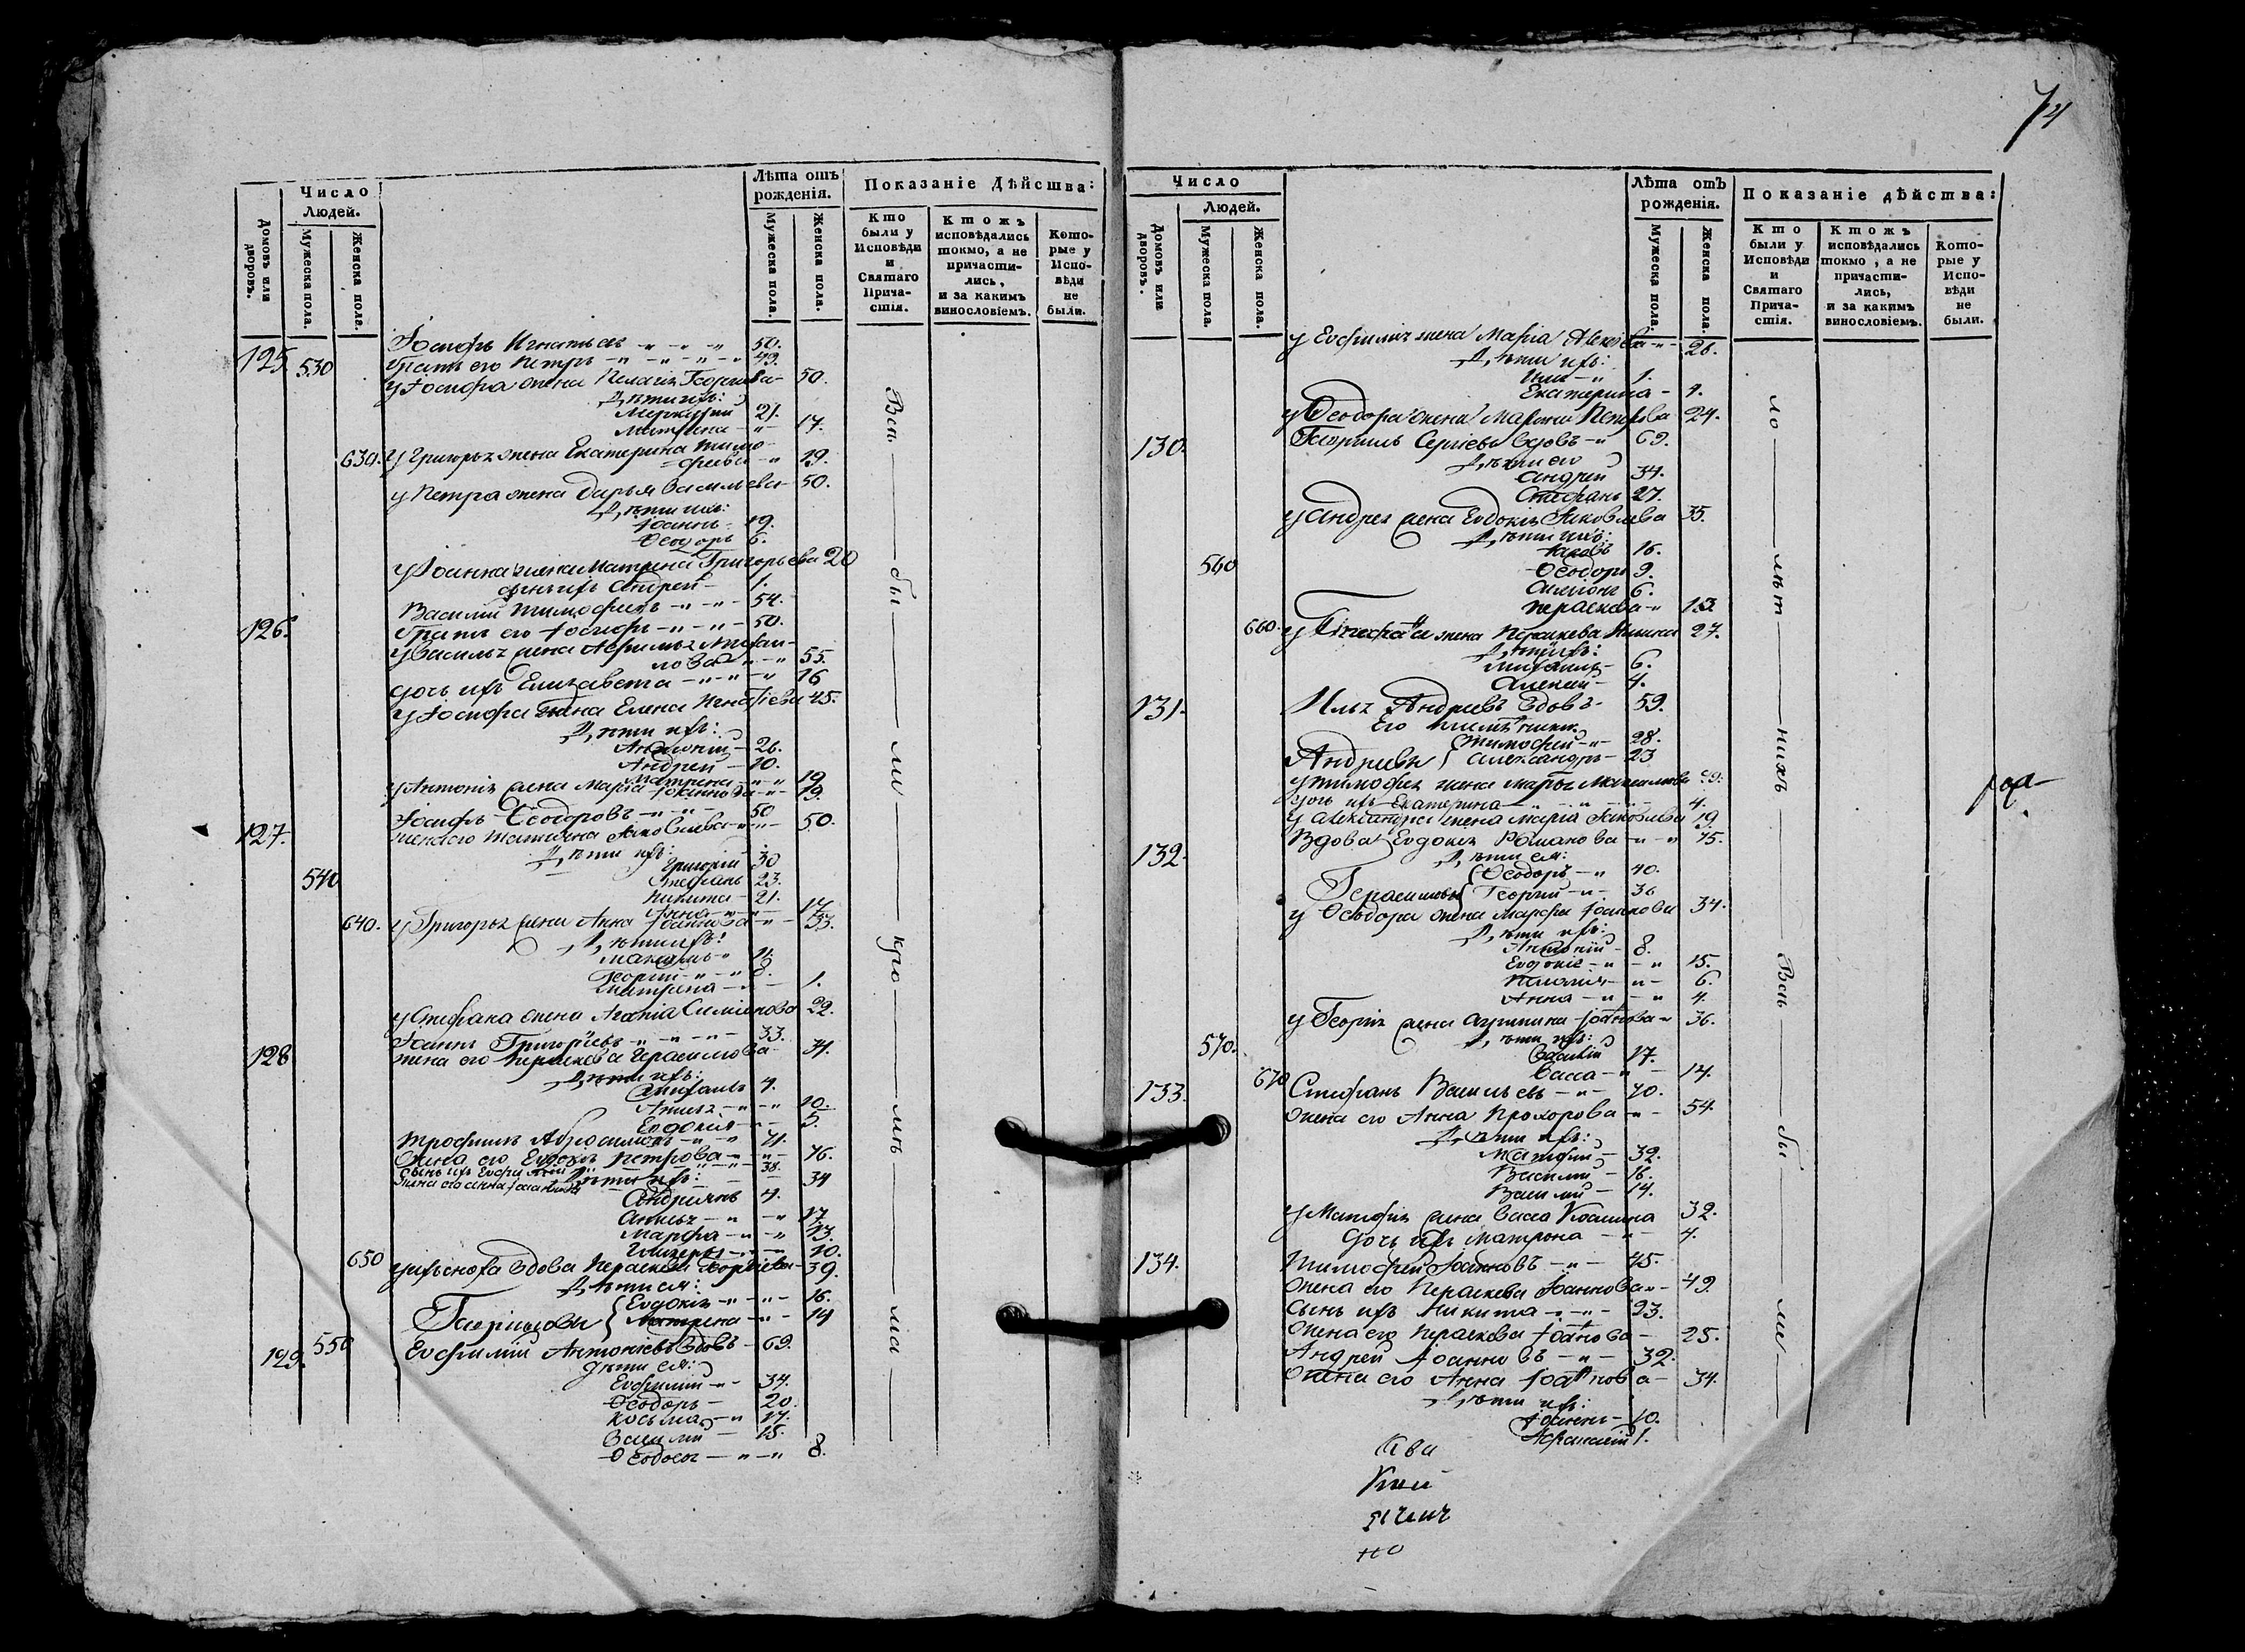 Число
Людей.
Домовъ или дворовъ.
Мужеска пола.
Женска пола.
Лѣта отъ рожденія.
Мужеска пола.
Женска пола.
Показаніе Дѣйства:
Кто были у Исповѣди и Святаго Причастія.
Ктожъ исповѣдались токмо, а не причастились, и за какимъ винословіемъ.
Которые у Исповѣди не были.
Іосифъ Игнатьевъ 50.
125. 530 братъ его Петръ 49.
у Іосифа жена Пелагія Георгіева 50.
Дѣти ихъ:
Меркурій 21.
Матрена 17.
639. у Григорья жена Екатерина Тимо-
феева 19.
у Петра жена Дарья Васильева 50.
Дѣти ихъ:
Іоаннъ 19.
Ѳеодоръ 6.
у Іоанна жена Матрена Григорьева 20
Андрей 1.
Василій Тимофеевъ 54.
126. братъ его Іосифъ 50.
у Василья жена
55.
дочь ихъ Елизавета 16
у Іосифа жена Елена Игнатіева 45.
Дѣти ихъ:
Антоній 26.
Андрей 10.
Матрена 19
у Антонія жена Марія Іоаннова 19.
Іосифъ Ѳеодоровъ 50
127. жена его Татьяна Яковлева 50.
Дѣти ихъ:
Григорій 30
540 Стефанъ 23.
Никита 21.
Анна 17
640. у Григорья жена Анна Іоаннова 33.
Дѣти ихъ:
Максимъ 11.
Георгій 8.
Матрена 1.
у Стефана жена Агапія Симіонова 22.
Іоаннъ Григорьевъ 33.
128 жена его Параскева Герасимова 34.
Дѣти ихъ:
Стефанъ 4.
10.
Евдокия 5.
Трофимъ Абросимовъ 71.
жена его Евдокія Петрова 76.
сынъ ихъ 38.
жена его Анна 34
Дѣти ихъ:
Андріянъ 4.
17
Марфа 13.
Гликерья 10.
650 вдова Параскева Георгіева 39.
Дѣти ея:
Евдокія 16.
Матрена 14
129. 550 Евфимій Антоніевъ вдовъ 69.
Дѣти ея:
Евфимій 34.
Ѳеодоръ 20.
Косьма 17.
Василій 15.
Ѳеодосья 8.
Всѣ бы ли кро мѣ ма
74
Число
Людей.
Домовъ или дворовъ.
Мужеска пола.
Женска пола.
Лѣта отъ рожденія.
Мужеска пола.
Женска пола.
Показаніе дѣйства:
Кто были у Исповѣди и Святаго Причастія.
Ктожъ исповѣдались токмо, а не причастились, и за какимъ винословіемъ.
Которые у Исповѣди не были.
у Евфимія жена Марія Алексіева 26.
Дѣти ихъ:
Илія 1.
Екатерина 4.
у Ѳеодора жена Марфа Петрова 24.
130. Гавріилъ Сергіевъ вдовъ 69.
Дѣти его
Андрей 34.
Стефанъ 27.
у Андрея жена Евдокія Яковлева 35.
Дѣти ихъ:
Іаковъ 16.
560 Ѳеодоръ 9.
Симіонъ 6.
Параскева 13.
660. у Стефана жена Параскева 27.
Дѣти ихъ:
6.
Алексій 4.
131. Илья Андреевъ вдовъ 59.
Его племянники
Тимофей 28.
Андреевы Александръ 23
у Тимофея жена Марфа
дочь ихъ Екатерина 4.
у Александра жена Марія Іаковлева 19
132. Вдова Евдокія Романова 75.
Дѣти ея:
Ѳеодоръ 40.
Герасимовы Георгій 36
у Ѳеодора жена Марфа Іоаннова 34.
Дѣти ихъ:
Антоній 8.
Евдокія 15.
Пелагія 6.
Анна 4.
у Георгія жена Агрипина Іоаннова 36.
Дѣти ихъ:
570. Василій 17.
Васса 14.
133. 670 Стефанъ Васильевъ 70.
жена его Анна Прохорова 54.
Дѣти ихъ:
Матфей 32.
Василій 16.
Василій 14.
у Матфея жена Васса Космина 32.
дочь ихъ Матрона 4.
134. Тимофей Іоанновъ 45.
жена его Параскева Іоаннова 49.
сынъ ихъ Никита 23.
жена его Параскева Іоаннова 25.
Андрей Іоанновъ 32.
жена его Анна Іоаннова 34.
Дѣти ихъ:
Іоаннъ 10.
Афанасій 1.
ло лѣт нихъ Всѣ бы ли